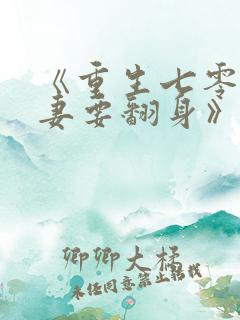 《重生七零
妻要翻身》
卿卿大橘
未经同意禁止转载